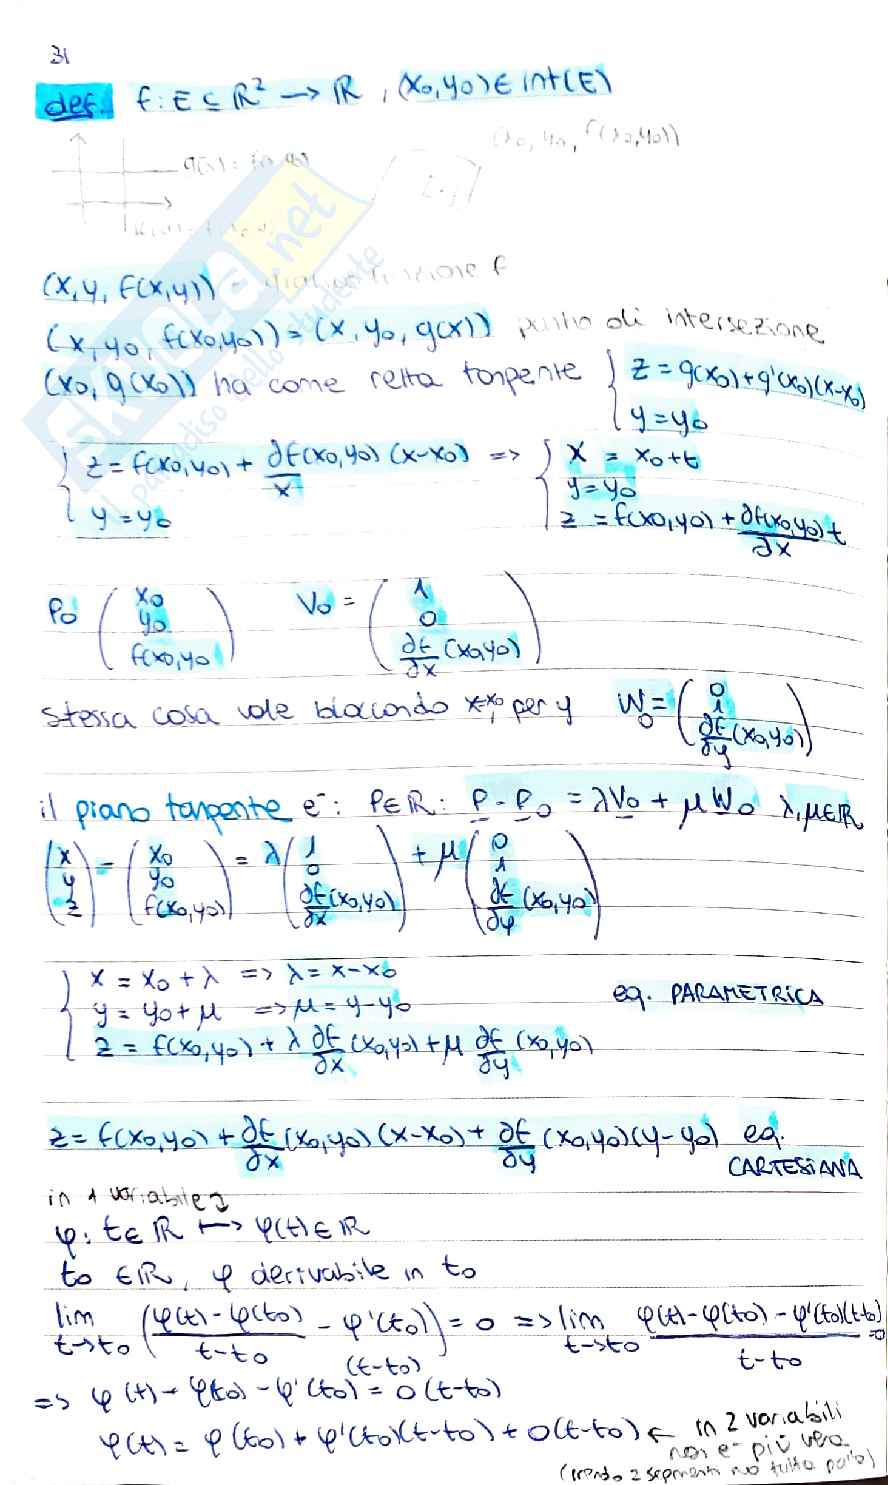 31
def. f: E ⊆ ℝ² → ℝ, (x0,y0) ∈ int(E)
(x0, y0, f(x0,y0))
SKUOLA.net
il paradiso dello studente
(x, y, f(x,y)) funzione f
(x, y0, f(x0,y0)) = (x, y0, g(x)) punto di intersezione
(x0, g(x0)) ha come retta tangente { z = g(x0)+g'(x0)(x-x0)
y = y0
{ z = f(x0,y0) + ∂f(x0,y0)/x (x-x0) => { x = x0+t
y = y0 y = y0
z = f(x0,y0) + ∂f(x0,y0)/∂x t
P0 (x0 y0 f(x0,y0) V0 = (1 0 ∂f/∂x (x0,y0))
stessa cosa vale bloccando x=x0, per y W0 = (0 1 ∂f/∂y (x0,y0))
il piano tangente e': P∈ℝ: P - P0 = λV0 + μW0 λ,μ∈ℝ
(x y z) - (x0 y0 f(x0,y0)) = λ (1 0 ∂f/∂x (x0,y0)) + μ (0 1 ∂f/∂y (x0,y0))
{ x = x0 + λ => λ = x-x0
y = y0 + μ => μ = y-y0 eq. PARAMETRICA
z = f(x0,y0) + λ ∂f/∂x (x0,y0) + μ ∂f/∂y (x0,y0)
z = f(x0,y0) + ∂f/∂x (x0,y0)(x-x0) + ∂f/∂y (x0,y0)(y-y0) eq.
CARTESIANA
in 1 variabile
φ: t∈ℝ ↦ φ(t)∈ℝ
t0 ∈ℝ, φ derivabile in t0
lim t→t0 (φ(t)-φ(t0)/t-t0 - φ'(t0)) = 0 => lim t→t0 φ(t)-φ(t0)-φ'(t0)(t-t0)/t-t0 =0
(t-t0)
=> φ(t) - φ(t0) - φ'(t0) = o(t-t0)
φ(t) = φ(t0) + φ'(t0)(t-t0) + o(t-t0) ← in 2 variabili
non e' più vera
2 segmenti no tutta